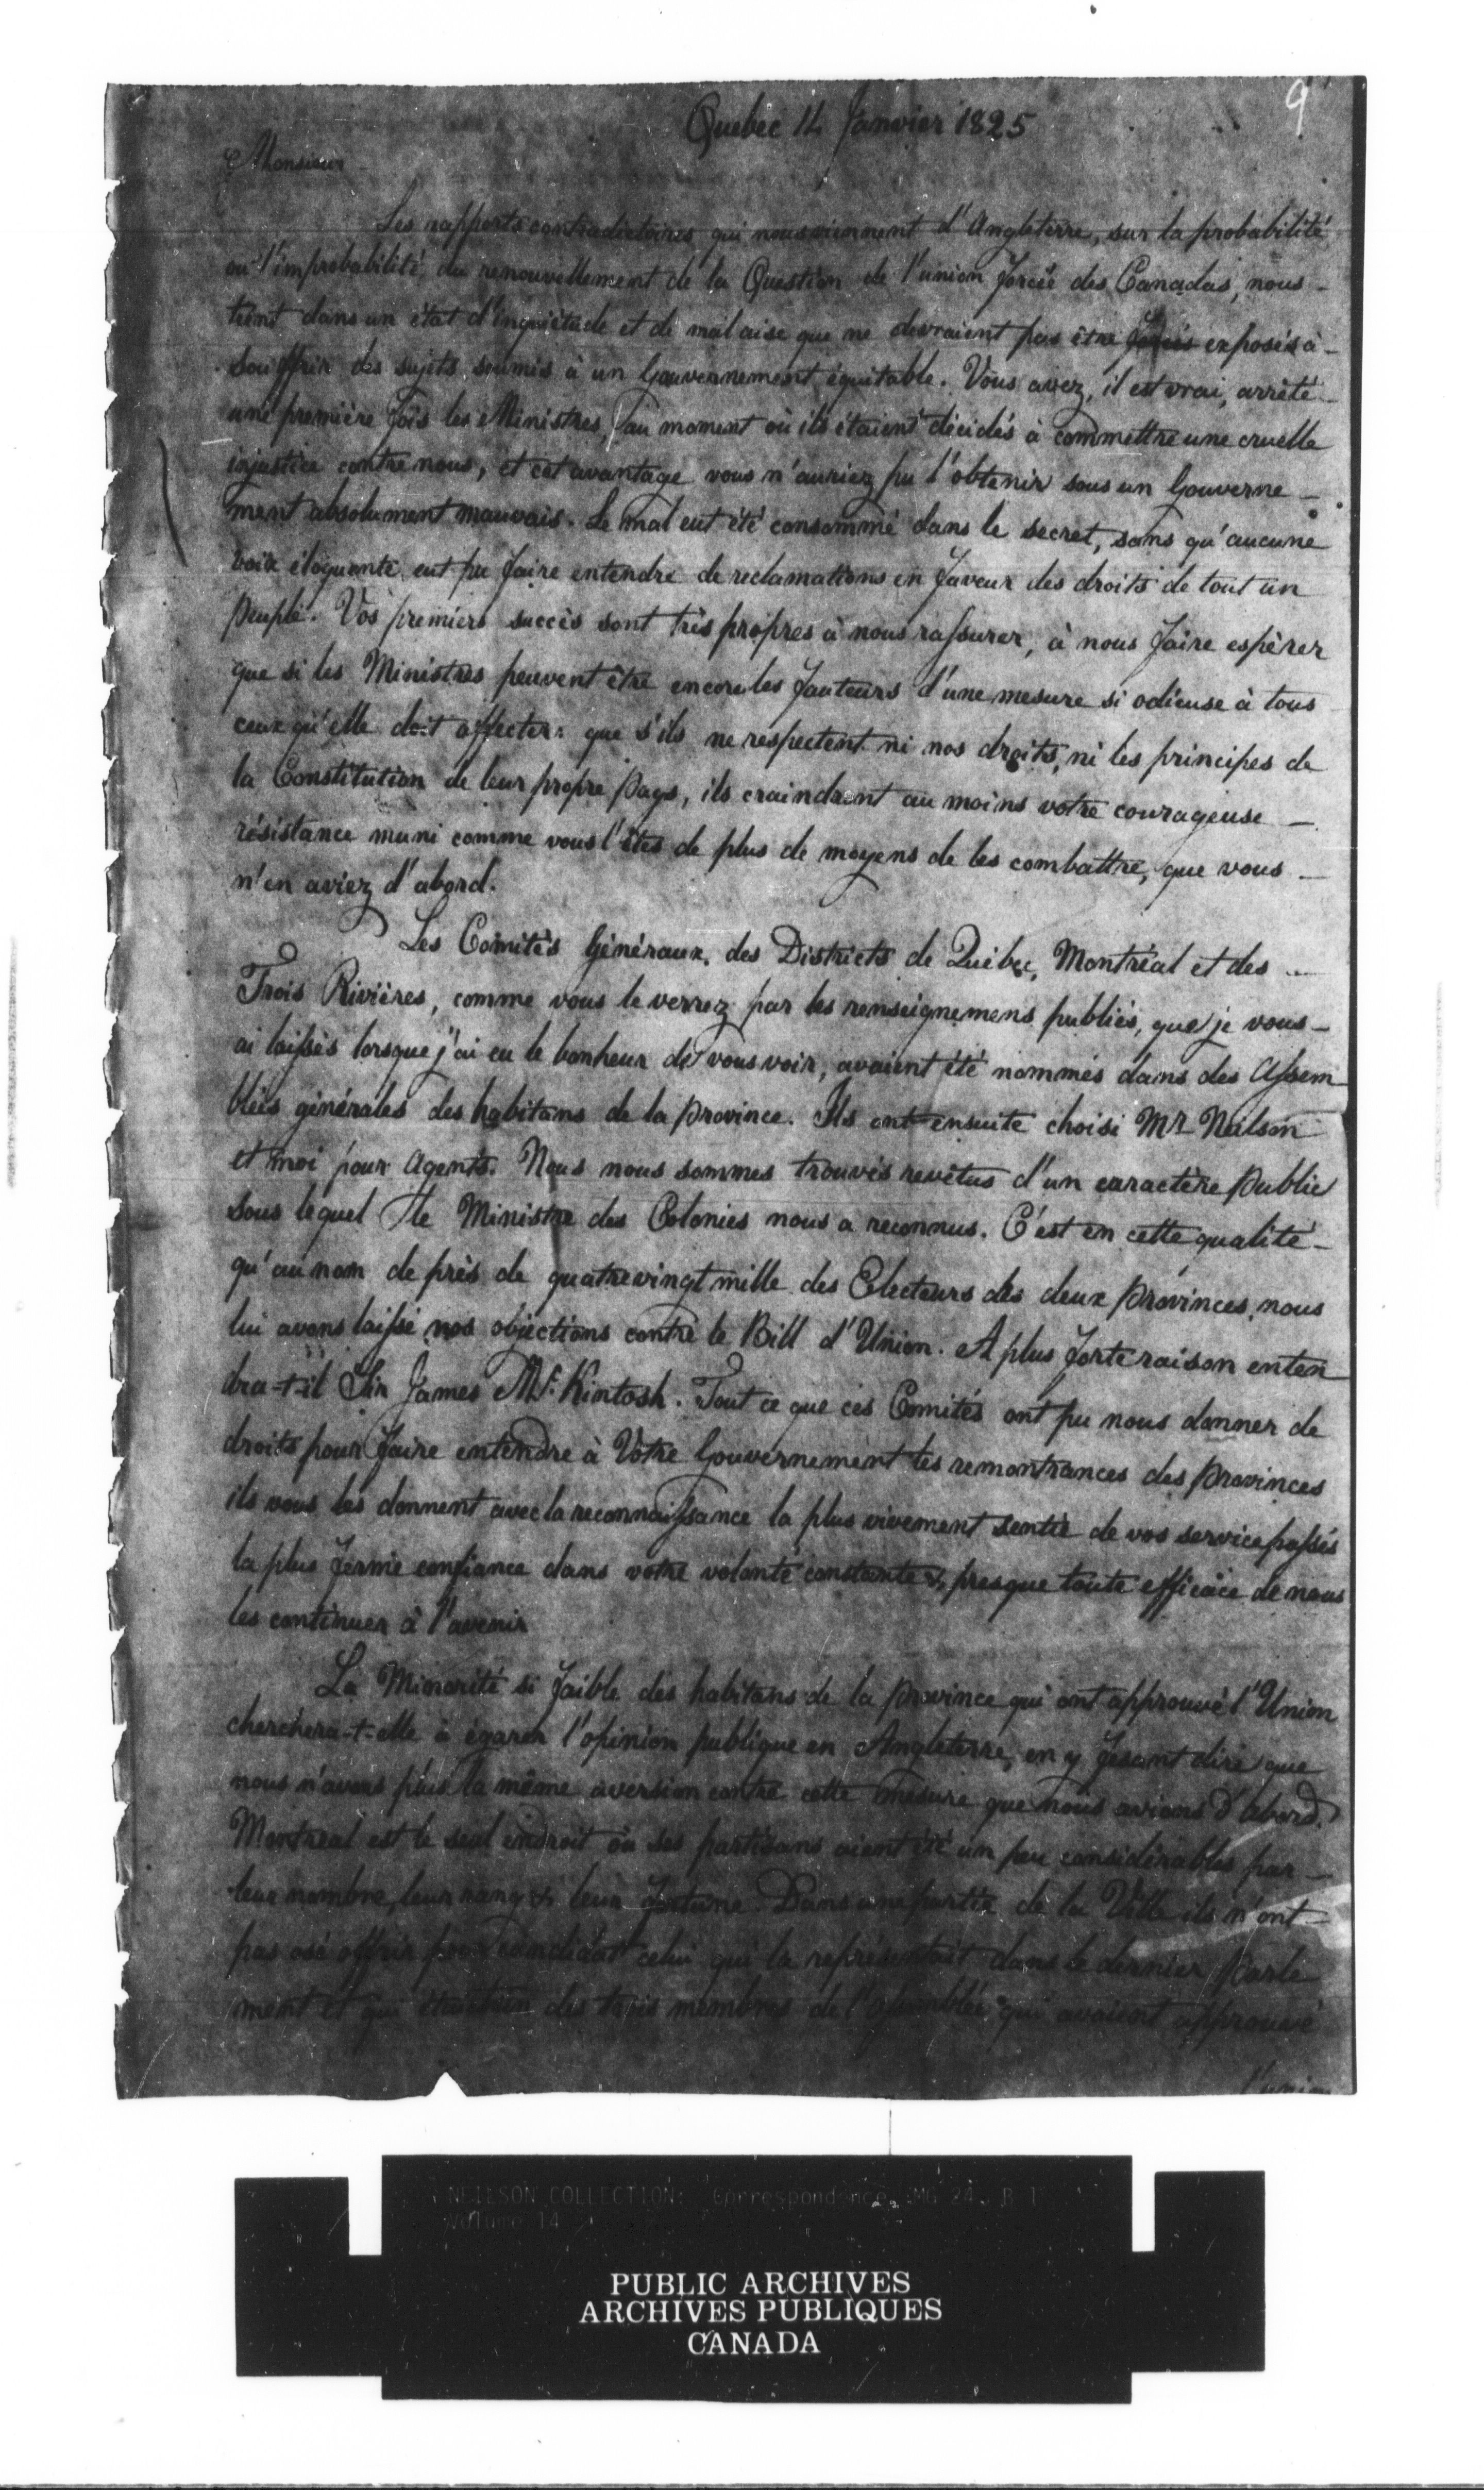 9
Quebec 14 Janvier 1825
Monsieur
Les rapports contradictoires qui nous viennent d'Angleterre, sur la probabilité
ou l'improbabilité, du renouvellement de la Question de l'union forcée des Canadas, nous -
tient dans un état d'inquiétude et de malaise que ne devraient pas être exposés à -
souffrir des sujets soumis à un Gouvernement équitable. Vous avez, il est vrai, arrêté
une première fois les Ministres, au moment où ils étaient décidés à commettre une cruelle
injustice contre nous, et cet avantage vous n'auriez pu l'obtenir sous un Gouverne -
ment absolument mauvais. Le mal eut été consommé dans le secret, sans qu'aucune
voix éloquente eut pu faire entendre de reclamations en faveur des droits de tout un
peuple. Vos premiers succès sont très propres à nous rassurer, à nous faire espérer
que si les Ministres peuvent être encore les fauteurs d'une mesure si odieuse à tous
ceux qu'elle doit affecter: que s'ils ne respectent ni nos droits, ni les principes de
la Constitution de leur propre pays, ils craindront au moins votre courageuse -
résistance muni comme vous l'êtes de plus de moyens de les combattre, que vous -
n'en aviez d'abord.
Les Comités Généraux, des Districts de Québec, Montréal et des -
Trois Rivières, comme vous le verrez par les renseignemens publiés, que je vous -
ai laissés lorsque j'ai eu le bonheur de vous voir, avaient été nommés dans des Assem
blées générales des habitans de la province. Ils ont ensuite choisi Mr Neilson
et moi pour Agents. Nous nous sommes trouvés revêtus d'un caractère public
sous lequel le Ministre des Colonies nous a reconnus. C'est en cette qualité -
qu'au nom de près de quatrevingt mille des Electeurs des deux provinces, nous
lui avons laissé nos objections contre le Bill d'Union. A plus forte raison enten
dra-t-il Sir James Mc.Kintosh. Tout ce que ces Comités ont pu nous donner de
droits pour faire entendre à Votre Gouvernement les remontrances des provinces
ils vous les donnent avec la reconnaissance la plus vivement sentie de vos service passés
la plus ferme confiance dans votre volonté constante &, presque toute efficace de nous
les continuer à l'avenir
La Minorité si faible des habitans de la province qui ont approuvé l'Union
cherchera-t-elle à égarer l'opinion publique en Angleterre, en y fesant dire que
nous n'avons plus la même aversion contre cette mesure que nous avions d'abord.
Montreal est le seul endroit où ses partisans aient été un peu considérables par -
leur nombre, leur rang & leur fortune. Dans une partie de la Ville ils n'ont -
pas osé offrir pour candidat celui qui la représentait dans le dernier parle
ment et qui des trois membres de l'assemblée qui avaient approuvé
l'union
NEILSON COLLECTION: Correspondence, MG 24, B 1
Volume 14
PUBLIC ARCHIVES
ARCHIVES PUBLIQUES
CANADA